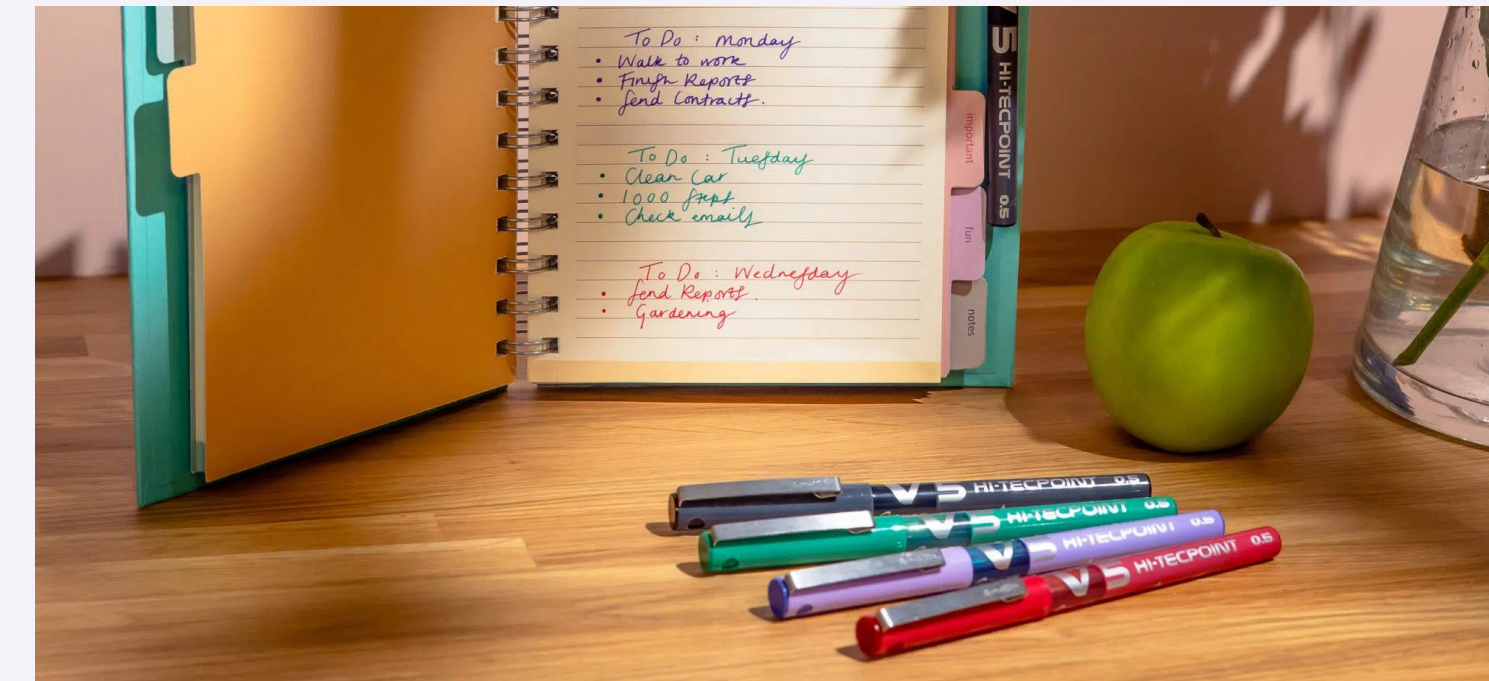 To Do : Monday
• Walk to work
• Finish Reports
• Send Contracts.
To Do : Tuesday
• Clean Car
• 1000 steps
• Check emails
To Do : Wednesday
• Send Reports.
• Gardening
important
fun
notes
5 HI-TECPOINT 0.5
V5 HI-TECPOINT 0.5
V5 HI-TECPOINT 0.5
V5 HI-TECPOINT 0.5
V5 HI-TECPOINT 0.5